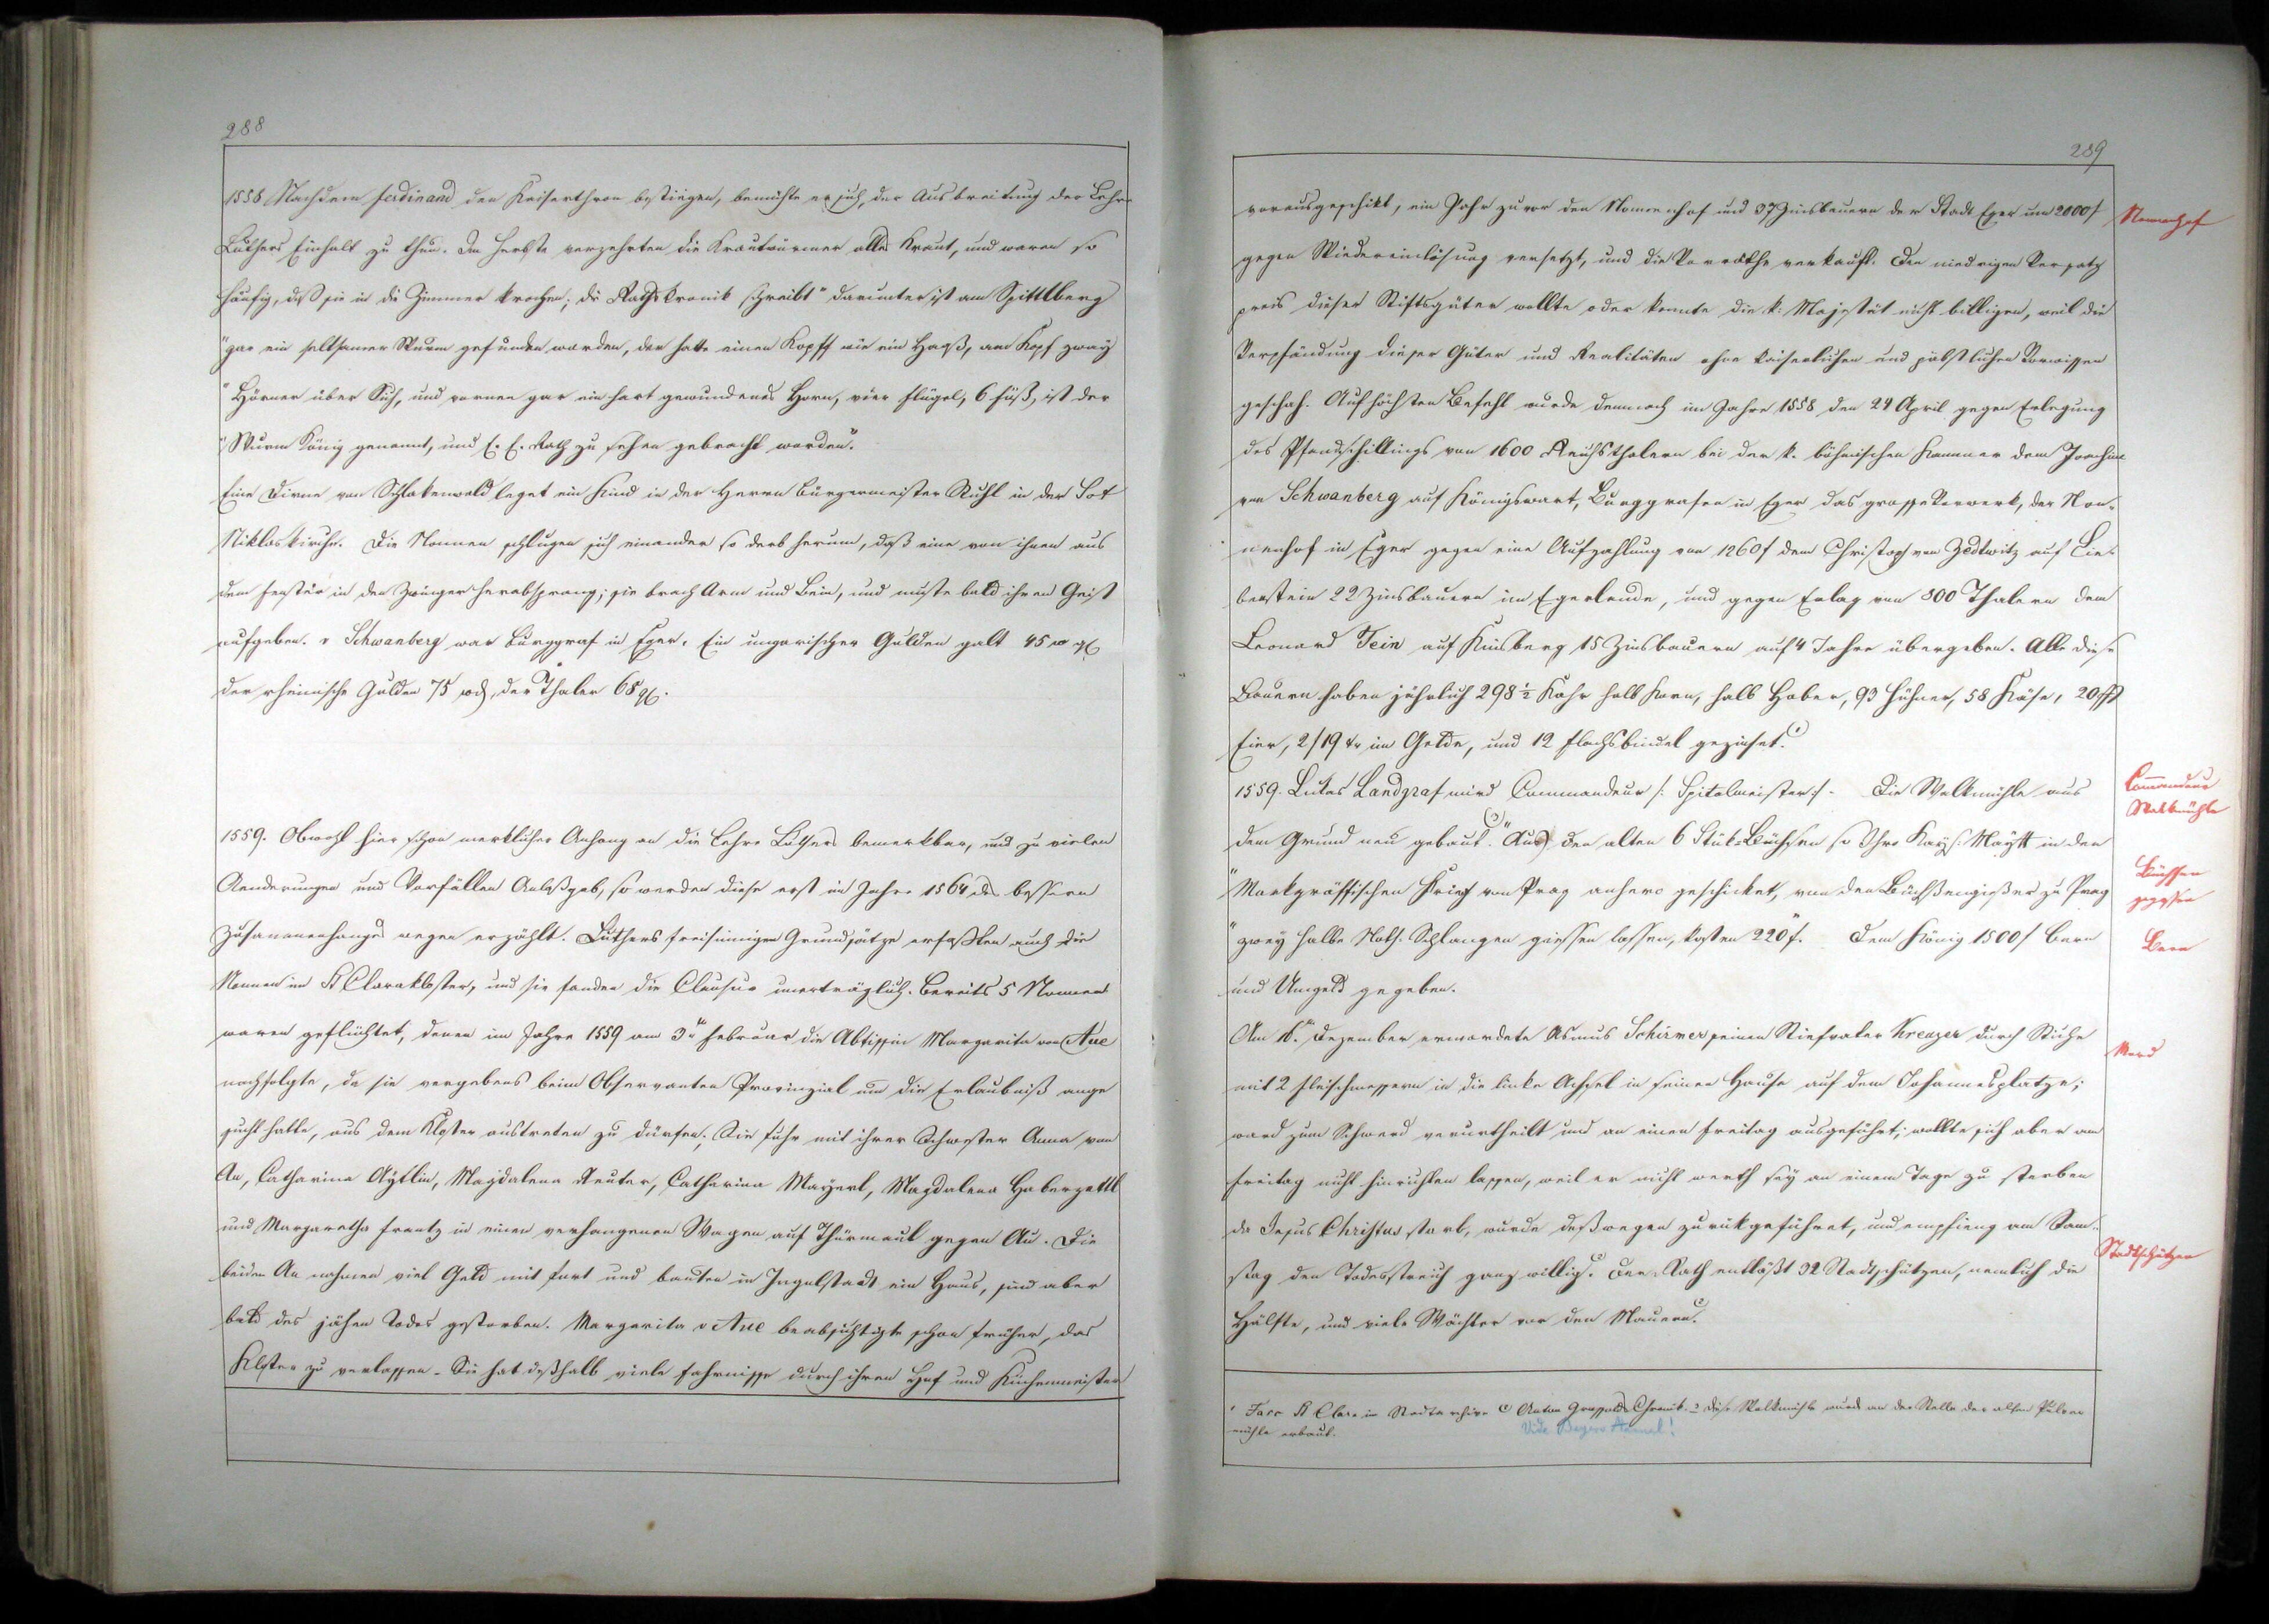 288
1558 Nachdem Ferdinand den Kaiserthron bestiegen, bemühte er sich, der Ausbreitung der Lehre
Luthers Einhalt zu thun. Im Herbste verzehrten die Krautwürmer alles Kraut, und waren so
häufig, daß sie in die Zimmer krochen; die Rathskronik schreibt "darunter ist am Spittlberg
"gar ein seltsamer Wurm gefunden worden, der hatte einen Kopff wie ein Haß, am Kopf zway
"Hörner über sich, und vornen gar ein hart gewundenes Horn, vier Flügel, 6 Füß, ist der
"Wurm König genannt, und E. E. Rath zu sehen gebracht worden".
Eine Dirne von Schlakenwald leget ein Kind in der Herrn Bürgermeister Stuhl in der Sct
Niklaskirche. Die Nonnen schlugen sich einander so derb herum, daß eine von ihnen aus
dem Fenster in den Zwinger herabsprang; sie brach Arm und Bein, und mußte bald ihren Geist
aufgeben. v Schwanberg war Burggraf in Eger. Ein ungarischer Gulden galt 45
der rheinische Gulden 75 der Thaler 68
1559. Obwohl hier schon merklicher Anhang an die Lehre Luthers bemerkbar, und zu vielen
Aenderungen und Vorfällen Anlaß gab, so werden diese erst im Jahre 1564 des bessern
Zusammenhanges wegen erzählt. Luthers freisinnigen Grundsätze erfaßten auch die
Nonnen im St Clarakloster, und sie fanden die Clausur unerträglich. Bereits 5 Nonnen
waren geflüchtet, denen im Jahre 1559 am 3n Februar die Abtissin Margarita von Aue
nachfolgte, da sie vergebens beim Observanten Provinzial um die Erlaubniß ange
sucht hatte, aus dem Kloster austreten zu dürfen. Sie fuhr mit ihrer Schwester Anna von
Au, Catharina Aytlin, Magdalena Reuter, Catharina Mayerl, Magdalena Haberzettl
und Margaretha Frantz in einen verhangenen Wagen auf Thürmaul gegen Au. Die
beiden Au nahmen viel Geld mit fort und bauten in Ingolstadt ein Haus, sind aber
bald des jähen Todes gestorben. Margarita v Aue beabsichtigte schon früher, das
Kloster zu verlassen. Sie hat deßhalb viele Fahrnisse durch ihren Hof und Küchenmeister
289
vorausgeschikt, ein Jahr zuvor den Nonnenhof und 37 Zinsbauern der Stadt Eger um 2000 f
Nonnenhof
gegen Wiedereinlösung versetzt, und die Vorräthe verkauft. Den niedrigen Versatz
preis dieser Stiftsgüter wollte oder konnte die k: Majestät nicht billigen, weil die
Verpfändung dieser Güter und Realitäten ohne kaiserlichen und päbstlichen Vorwissen
geschah. Auf höchsten Befehl wurde demnach im Jahre 1558 den 24 April gegen Erlegung
des Pfandschillings von 1600 Reichsthalern bei der k. böhmischen Kammer dem Joachim
von Schwanberg auf Königswart, Burggrafen in Eger das grosse Vorwerk, der Non-
nenhof in Eger gegen eine Aufzahlung von 1260 f dem Christoph von Zedtwitz auf Lie-
benstein 22 Zinsbauern im Egerlande, und gegen Erlag von 800 Thalern dem
Leonard Tein auf Kinsberg 15 Zinsbauern auf 4 Jahre übergeben. Alle diese
Bauern haben jährlich 298 ½ Kahr halb Korn, halb Haber, 93 Hühner, 58 Käse, 20 ßß
Eier, 2/19 kr im Gelde, und 12 Flachsbündel gezinset.¹
1559. Lukas Landgraf wird Commandeur /: Spitalmeister :/ - Die Walkmühle aus
Commandeur
Walkmühle
dem Grund neu gebaut.² "Aus den alten 6 Stük-Büchsen so Ihre Kays: Maytt in den
"Markgräffischen Krieg von Prag anhero geschicket, von den Büchßengießer zu Prag
Büchsen
gegossen
"zwey halbe Noth-Schlangen giessen lassen, kosten 220 f." Dem König 1500 f Bern
Bern
und Umgeld gegeben.
Am Dezember ermordete Asmus Schirmer seinen Stiefvater Kreuzer durch Stiche
Mord
mit 2 Fleischmessern in die linke Achsel in seinen Hause auf dem Johannesplatze;
ward zum Schwerd verurtheilt und an einen Freitag ausgeführt; wollte sich aber am
Freitag nicht hinrichten lassen, weil er nicht werth sey an einem Tage zu sterben
da Jesus Christus starb, wurde deßwegen zurükgeführet, und empfieng am Sam-
stag den Todesstreich ganz willig. Der Rath entläßt 32 Stadtschützen, nemlich die
Stadtschützen
Hälfte, und viele Wächter vor den Mauern.
¹ Fasc St Clara im Stadtarchive Anton Grassolds Chronik. ² diese Walkmühle wurde an der Stelle der alten Pulver
mühle erbaut.
Vide Bayers